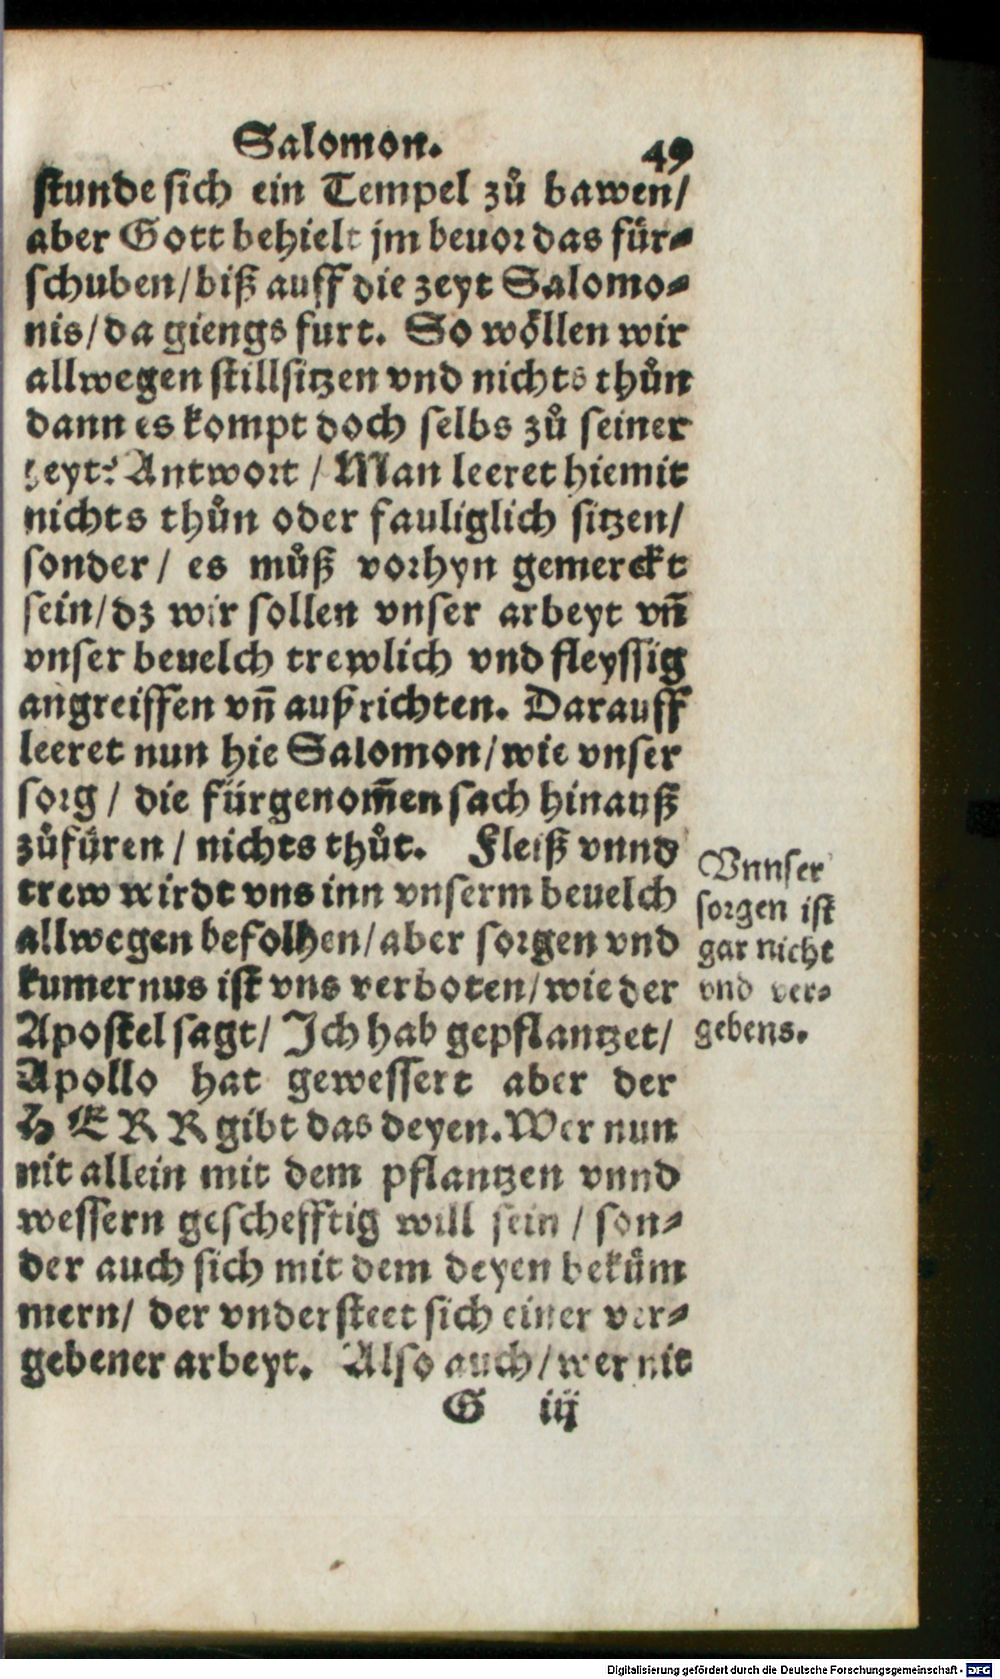 Salomon. 49
stunde sich ein Tempel zů bawen/
aber Gott behielt jm beuor das für-
schuben/ biß auff die zeyt Salomo-
nis/ da giengs furt. So wöllen wir
allwegen stillsitzen vnd nichts thůn
dann es kompt doch selbs zů seiner
zeyt? Antwort / Man leeret hiemit
nichts thůn oder fauliglich sitzen/
sonder / es můß vorhyn gemerckt
sein/ dz wir sollen vnser arbeyt vñ
vnser beuelch trewlich vnd fleyssig
angreiffen vñ außrichten. Darauff
leeret nun hie Salomon/ wie vnser
sorg / die fürgenom̃en sach hinauß
zůfüren / nichts thůt. Fleiß vnnd
trew wirdt vns inn vnserm beuelch
allwegen befolhen/ aber sorgen vnd
kumernus ist vns verboten/ wie der
Apostel sagt/ Ich hab gepflantzet/
Apollo hat gewessert aber der
HERR gibt das deyen. Wer nun
nit allein mit dem pflantzen vnnd
wessern geschefftig will sein / son-
der auch sich mit dem deyen beküm
mern/ der vndersteet sich einer ver-
gebener arbeyt. Also auch / wer nit
G iij
Vnnser
sorgen ist
gar nicht
vnd ver-
gebens.
Digitalisierung gefördert durch die Deutsche Forschungsgemeinschaft - DFG